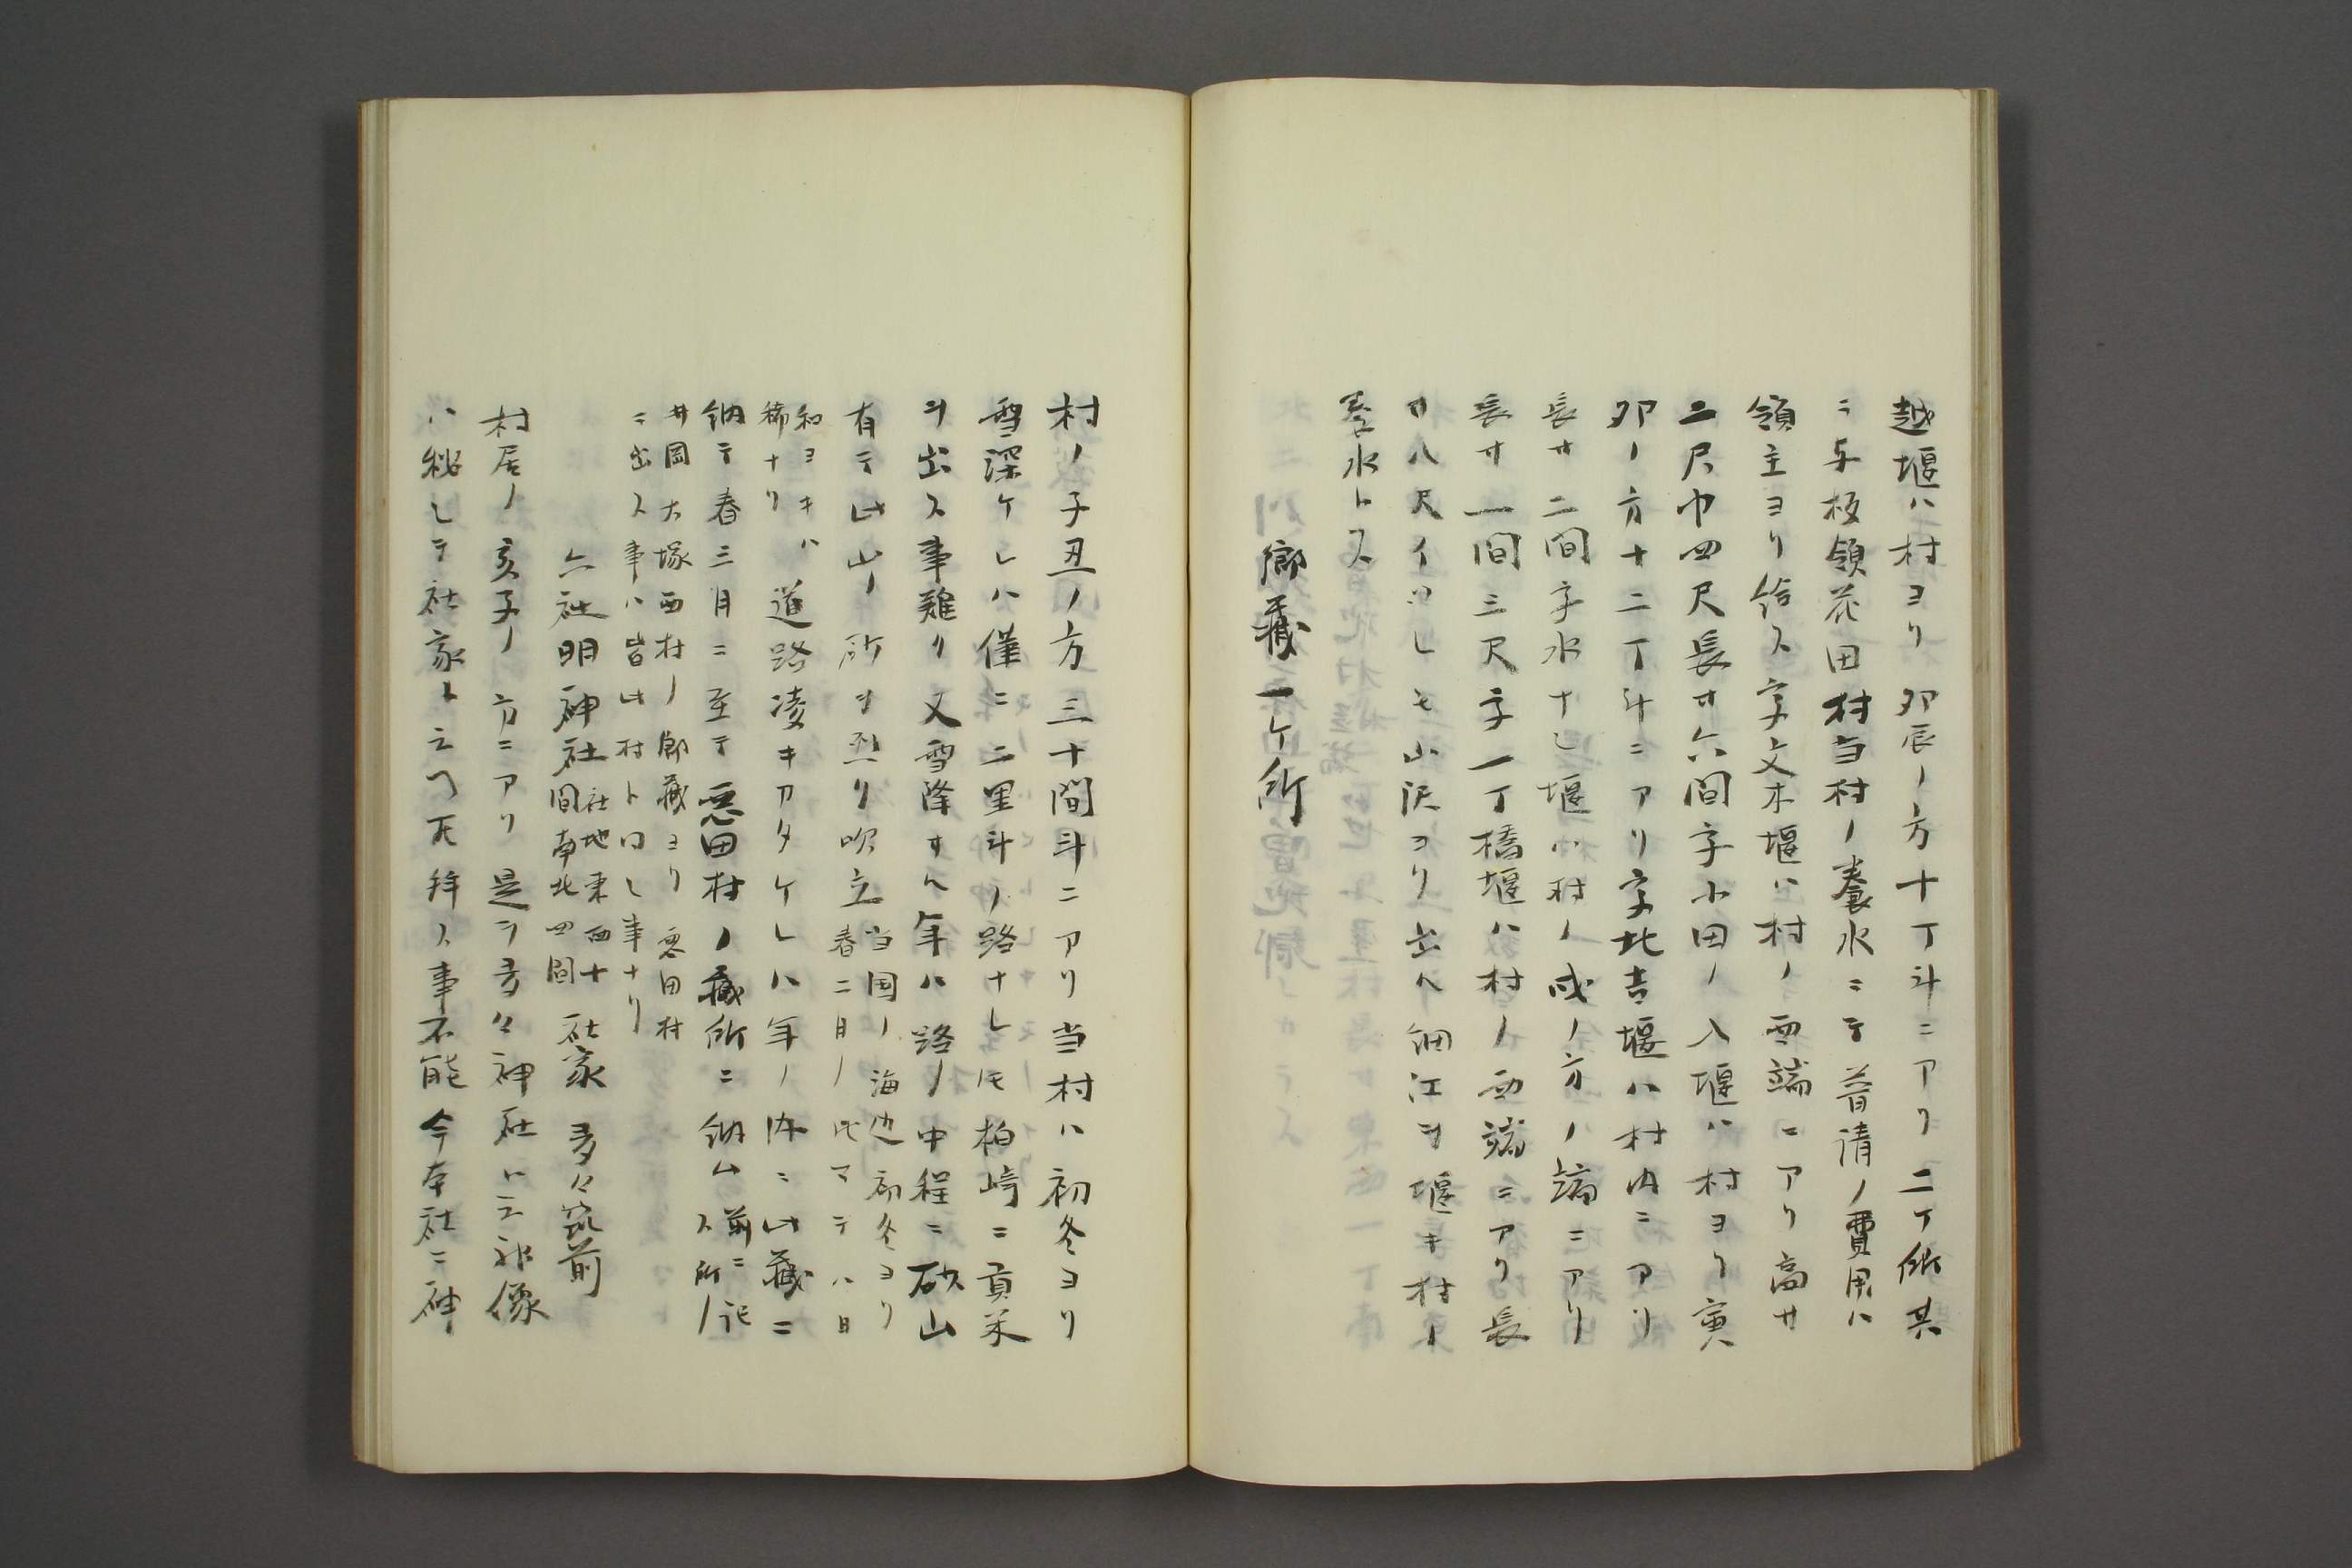 越堰ハ村ヨリ卯辰ノ方十丁斗ニアリ二ケ所共
ニ与板領花田村当村ノ養水ニテ普請ノ費用ハ
領主ヨリ給ス字文木堰ハ村ノ西端ニアリ高サ
二尺巾四尺長サ六間字小田ノ入堰ハ村ヨリ寅
卯ノ方十二丁斗ニアリ字北吉堰ハ村内ニアリ
長サ二間字水ナシ堰ハ村ノ戌ノ方ノ端ニアリ
長サ一間三尺字一丁橋堰ハ村ノ西端ニアリ長
サ八尺イツレモ山沢ヨリ出ル細江ヲ堰キ村ノ
養水トス
郷蔵一ケ所
村ノ子丑ノ方三十間斗ニアリ当村ハ初冬ヨリ
雪深ケレハ僅ニ二里斗ノ路ナレトモ柏崎ニ貢米
ヲ出ス事難リ又雪降サル年ハ路ノ中程ニ砂山
有テ此山ノ砂ヲ烈リ吹立
当国ノ海辺初冬ヨリ
春二月ノ比マテハ日
和ヨキハ
稀ナリ
道路凌キカタケレハ年ノ内ニ此蔵ニ
納テ春三月ニ至テ悪田村ノ蔵所ニ納ム
前ニ記
ス所ノ
井岡大塚西村ノ郷蔵ヨリ悪田村
ニ出ス事ハ皆此村ト同シ事ナリ
六社明神社
社地東西十
間南北四間
社家 多々筑前
村居ノ亥子ノ方ニアリ是ヲ多々神社ト云神像
ハ秘シテ社家ト云ヘトモ拝ス事不能今本社ニ神